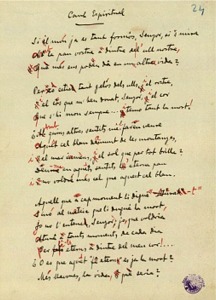 24
Cant Espiritual
Si el món ja es tant formós, Senyor, si 's mira
la pau vostra a dintre de l'ull nostre,
què més ens podeu dar en una altra vida?
estich tant gelós dels ulls, y el rostre,
y el cos que m'heu donat, Senyor, y el cor
que s'hi mou sempre... y temo tant la mort!
quins altres sentits me'l fareu veure
aquest cel blau damunt de les montanyes,
y el mar immens, y el sol que per tot brilla?
en aquests sentits l'eterna pau
y no voldré més cel que aquest cel blau.
Aquell que a cap moment li digué
Sinó al mateix que li dugué la mort,
Jo no l'entench, Senyor; jo que voldria
tants moments de cada dia
eterns a dintre del meu cor!...
O es que aquest es ja la mort?
Mes llavores, la vida, què seria?